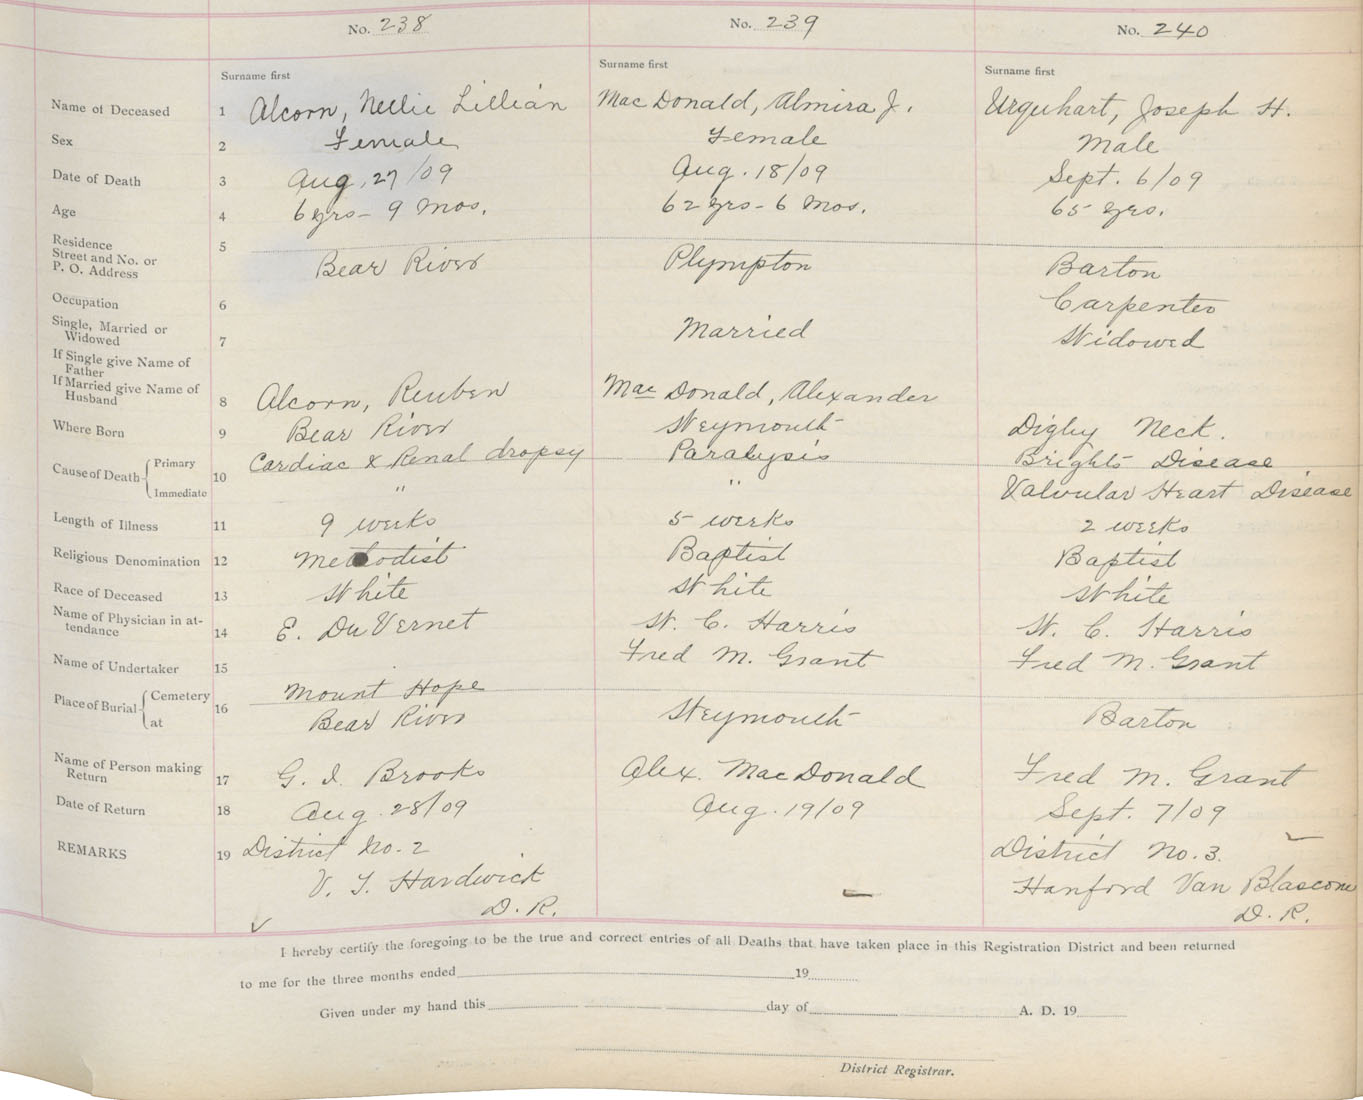 No. 238 No. 239 No. 240
Surname first Surname first Surname first
Name of Deceased 1 Alcorn, Nellie Lillian MacDonald, Almira J. Urquhart, Joseph H.
Sex 2 Female Female Male
Date of Death 3 Aug, 27/09 Aug. 18/09 Sept. 6/09
Age 4 6 yrs - 9 Mos. 62 yrs - 6 Mos. 65 yrs.
Residence 5
Street and No. or
P. O. Address Bear River Plympton Barton
Occupation 6 Carpenter
Single, Married or
Widowed 7 Married Widowed
If Single give Name of
Father
If Married give Name of
Husband 8 Alcorn, Reuben MacDonald, Alexander
Where Born 9 Bear River Weymouth Digby Neck.
Cause of Death { Primary 10 Cardiac & Renal dropsy Paralysis Brights Disease
Immediate " " Valvular Heart Disease
Length of Illness 11 9 weeks 5 weeks 2 weeks
Religious Denomination 12 Methodist Baptist Baptist
Race of Deceased 13 White White White
Name of Physician in at-
tendance 14 E. DuVernet W. C. Harris W. C. Harris
Name of Undertaker 15 Fred M. Grant Fred M. Grant
Place of Burial { Cemetery 16 Mount Hope
at Bear River Weymouth Barton
Name of Person making
Return 17 G. I. Brooks Alex. MacDonald Fred M. Grant
Date of Return 18 Aug. 28/09 Aug. 19/09 Sept. 7/09
REMARKS 19 District No. 2 District No. 3.
V. T. Hardwick Hanford Van Blascom
D. R. D. R.
I hereby certify the foregoing to be the true and correct entries of all Deaths that have taken place in this Registration District and been returned
to me for the three months ended 19
Given under my hand this day of A. D. 19
District Registrar.